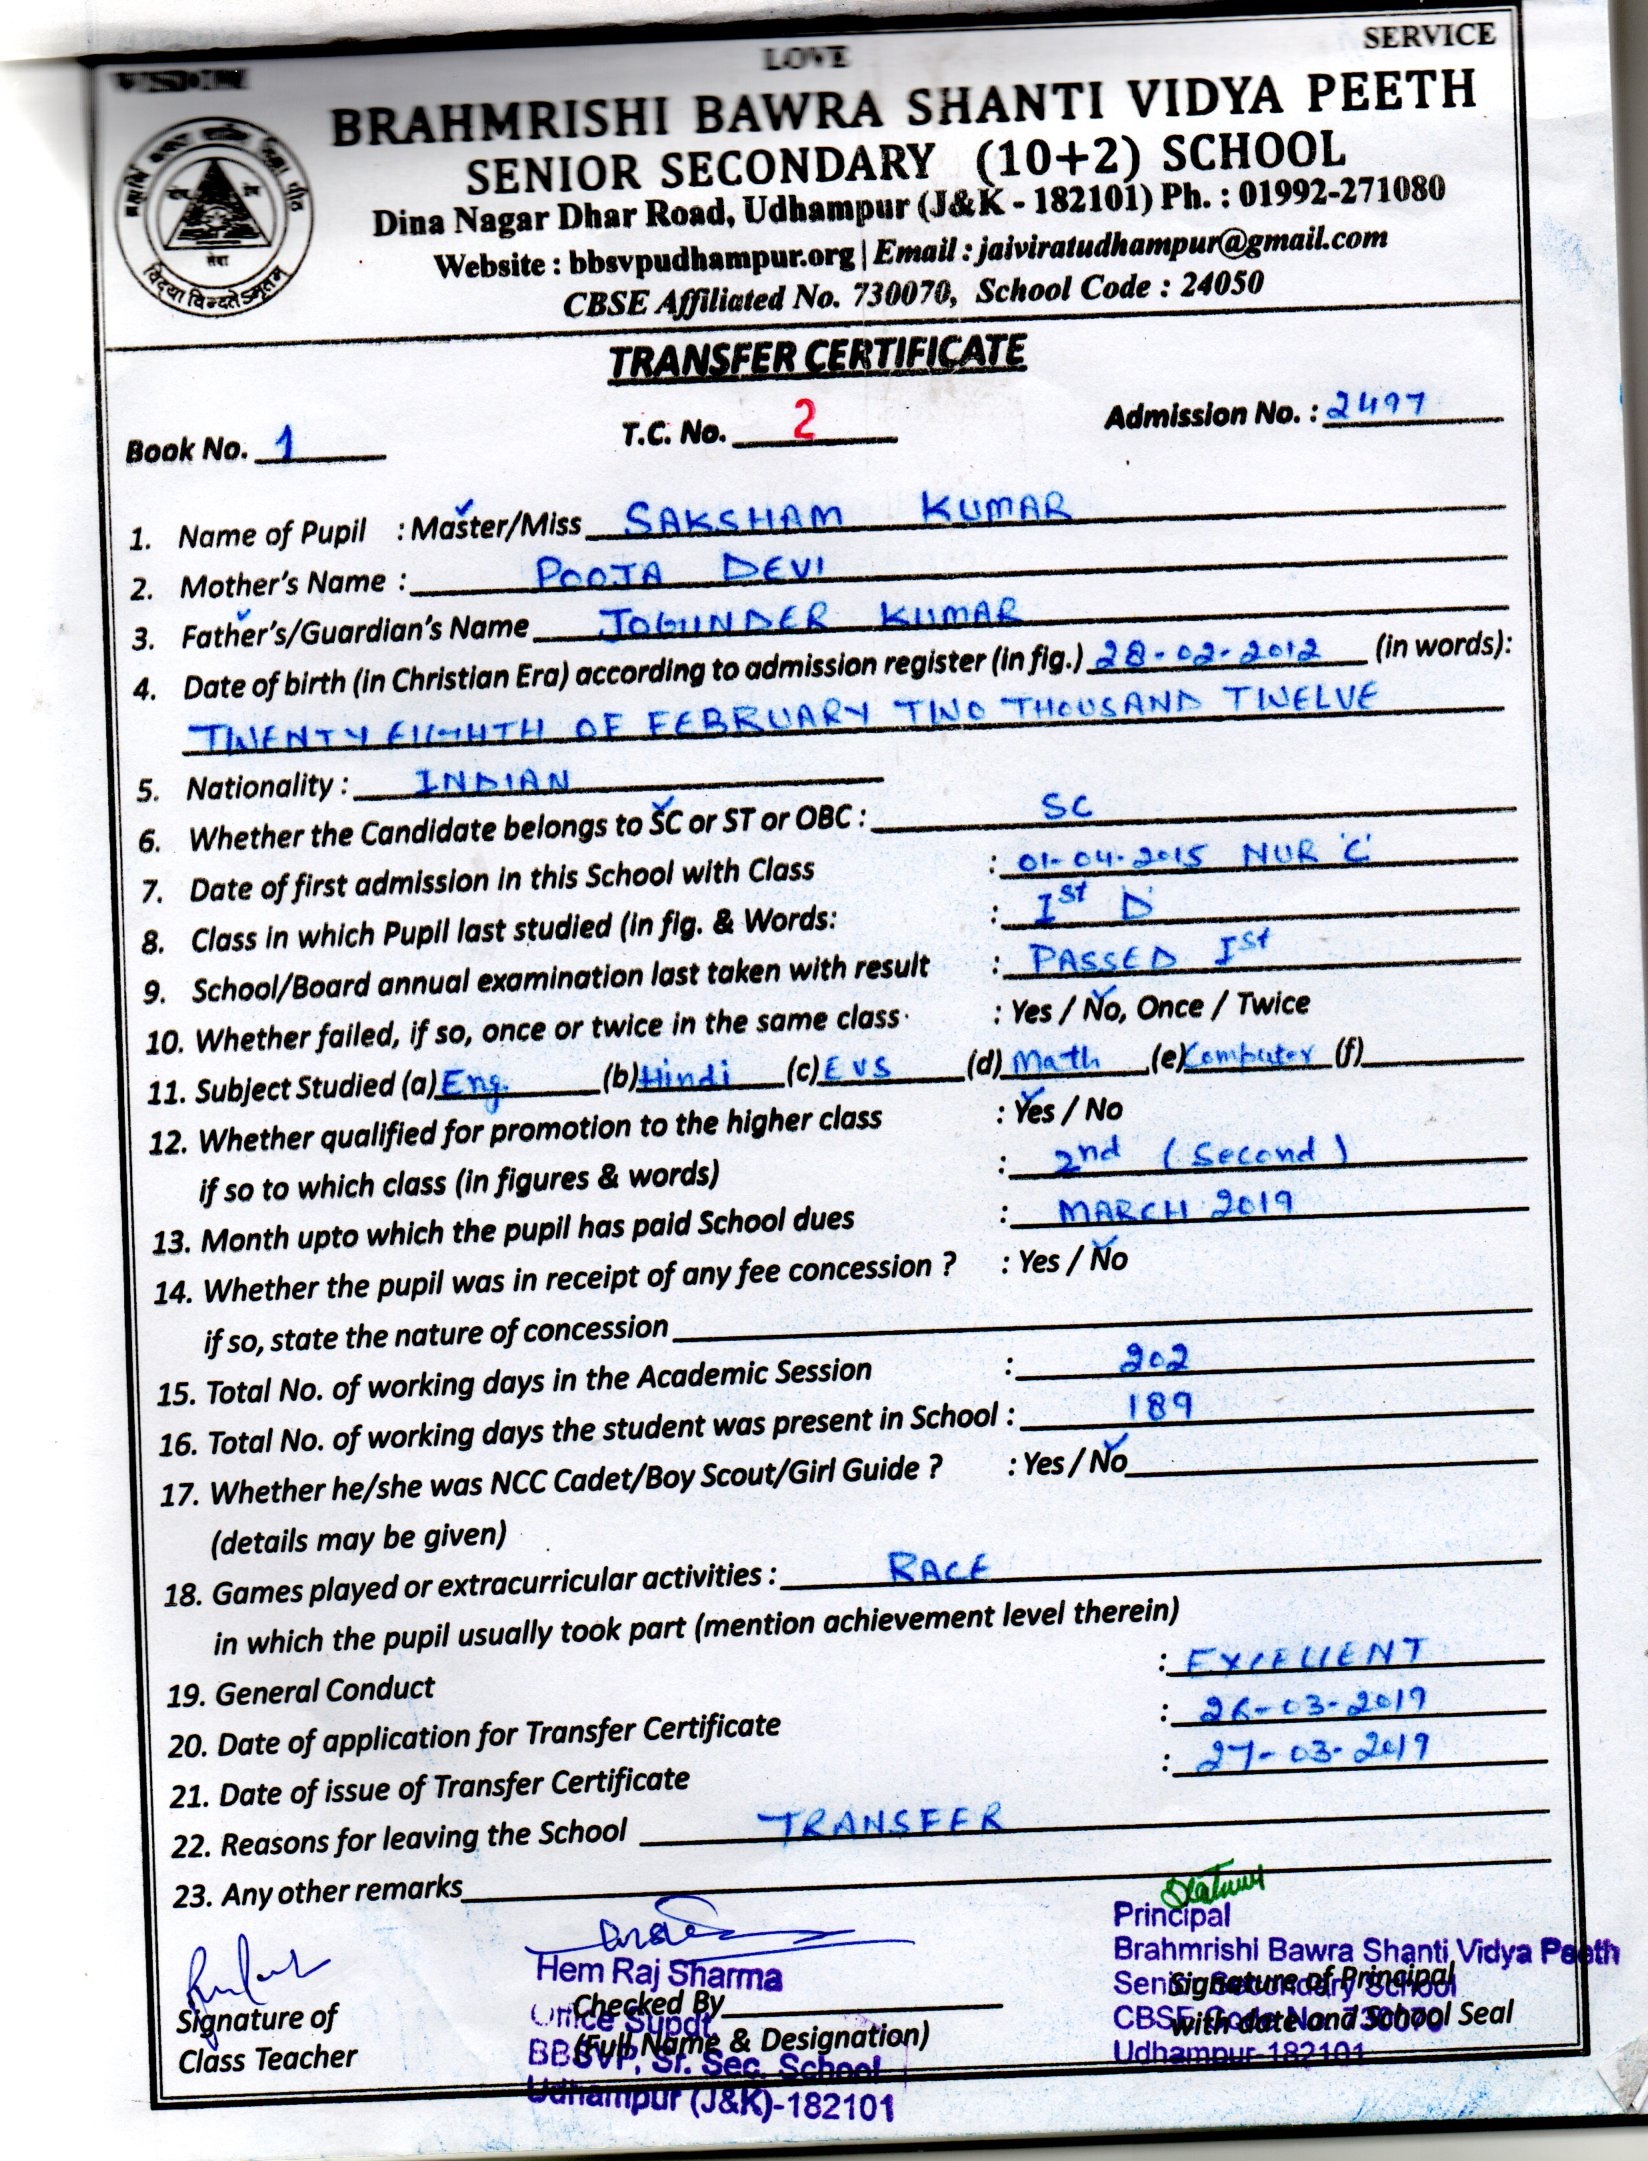 VISION LOVE SERVICE
BRAHMRISHI BAWRA SHANTI VIDYA PEETH
SENIOR SECONDARY (10+2) SCHOOL
Dina Nagar Dhar Road, Udhampur (J&K - 182101) Ph. : 01992-271080
Website : bbsvpudhampur.org | Email : jaiviratudhampur@gmail.com
CBSE Affiliated No. 730070, School Code : 24050
सेवा
विद्या विन्दतेऽमृतम्
TRANSFER CERTIFICATE
Book No. 1 T.C. No. 2 Admission No. : 2497
1. Name of Pupil : Master/Miss SAKSHAM KUMAR
2. Mother's Name : POOJA DEVI
3. Father's/Guardian's Name JOGINDER KUMAR
4. Date of birth (in Christian Era) according to admission register (in fig.) 28-02-2012 (in words):
TWENTY EIGHTH OF FEBRUARY TWO THOUSAND TWELVE
5. Nationality : INDIAN
6. Whether the Candidate belongs to SC or ST or OBC : SC
7. Date of first admission in this School with Class : 01-04-2015 NUR 'C'
8. Class in which Pupil last studied (in fig. & Words: : Ist D
9. School/Board annual examination last taken with result : PASSED Ist
10. Whether failed, if so, once or twice in the same class : Yes / No, Once / Twice
11. Subject Studied (a) Eng. (b) Hindi (c) EVS (d) Math (e) Computer (f)
12. Whether qualified for promotion to the higher class : Yes / No
if so to which class (in figures & words) : 2nd (Second)
13. Month upto which the pupil has paid School dues : MARCH 2019
14. Whether the pupil was in receipt of any fee concession ? : Yes / No
if so, state the nature of concession
15. Total No. of working days in the Academic Session : 202
16. Total No. of working days the student was present in School : 189
17. Whether he/she was NCC Cadet/Boy Scout/Girl Guide ? : Yes / No
(details may be given)
18. Games played or extracurricular activities : RACE
in which the pupil usually took part (mention achievement level therein)
19. General Conduct : EXCELLENT
20. Date of application for Transfer Certificate : 26-03-2019
21. Date of issue of Transfer Certificate : 27-03-2019
22. Reasons for leaving the School TRANSFER
23. Any other remarks
Signature of
Class Teacher
Hem Raj Sharma
Office Supdt
BBSVP, Sr. Sec. School
Udhampur (J&K)-182101
Checked By
(Full Name & Designation)
Principal
Brahmrishi Bawra Shanti Vidya Peeth
Senior Secondary School
CBSE Code No. 730070
Udhampur-182101
Signature of Principal
with date and School Seal